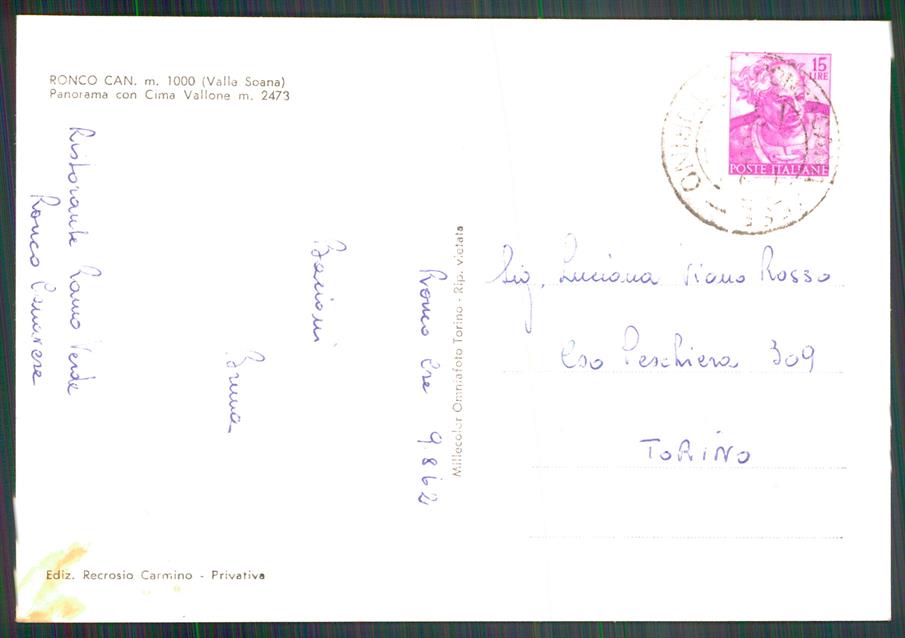 RONCO CAN. m. 1000 (Valle Soana)
Panorama con Cima Vallone m. 2473
Ristorante Ramo Verde
Ronco Canavese
Bacioni
Bruna
Ronco Cse 9 8 62
Millecolor Omniafoto Torino - Rip. vietata
15
LIRE
POSTE ITALIANE
TORINO
Sig. Luciana Viano Rosso
Cso Peschiera 309
TORINO
Ediz. Recrosio Carmino - Privativa